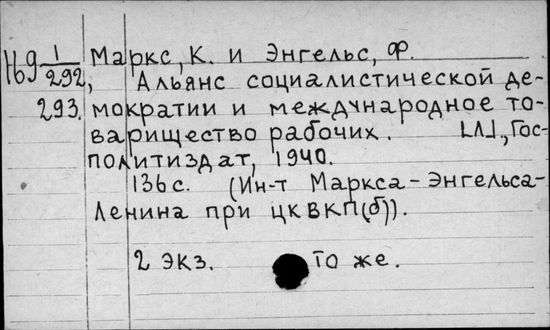 Н69 1/292, Маркс, К. и Энгельс, Ф.
Альянс социалистической де-
293. мократии и международное то-
варищество рабочих. [Л.], Гос-
политиздат, 1940.
136 с. (Ин-т Маркса-Энгельса-
Ленина при ЦКВКП(б)).
2 экз. то же.